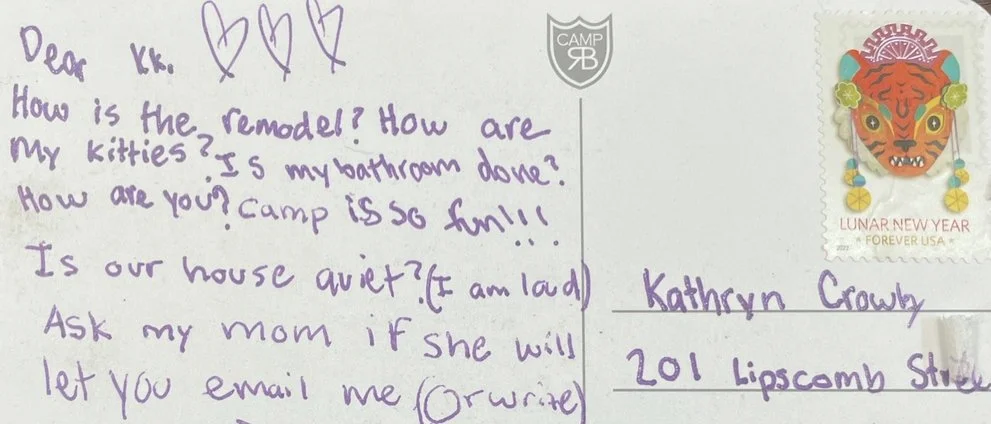 Dear Kk.
How is the remodel? How are
my kitties? Is my bathroom done?
How are you? Camp is so fun!!!
Is our house quiet? (I am loud)
Ask my mom if she will
let you email me (Or write)
CAMP
RB
LUNAR NEW YEAR
FOREVER USA
2022
Kathryn
201 Lipscomb